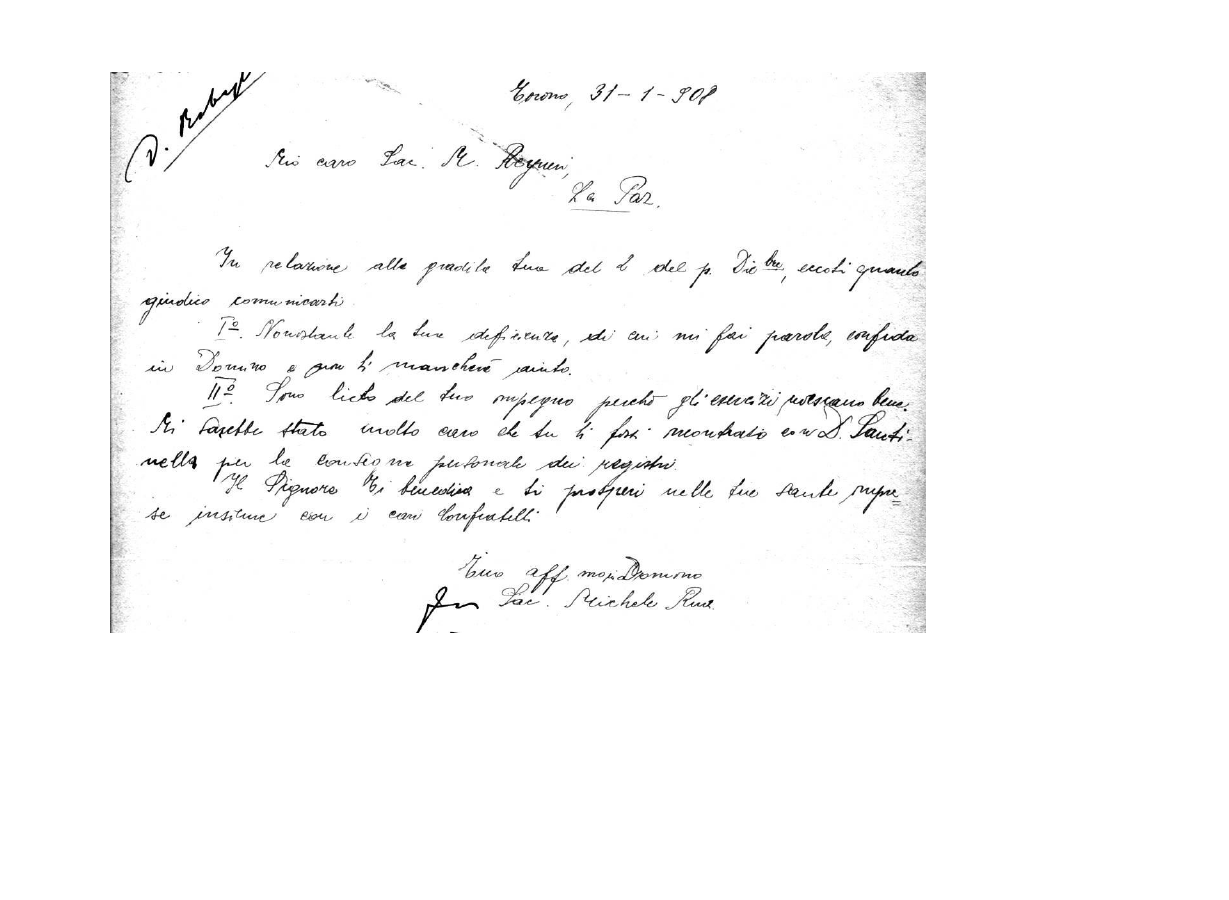 D.
Torino, 31-1-908
Mio caro Sac. M. Reyneri,
La Paz.
In relazione alla gradita tua del 2 del p. Dicbre, eccoti quanto
giudico comunicarti.
Iº. Nonostante la tua deficienza, di cui mi fai parola, confida
in Domino e non ti mancherà aiuto.
IIº. Sono lieto del tuo impegno perchè gli esercizi riescano bene.
Mi sarebbe stato molto caro che tu ti fossi incontrato con D. Santi-
nella per la consegna personale dei registri.
Il Signore Ti benedica e ti prosperi nelle tue sante impre=
se insieme con i cari Confratelli
Tuo aff. mo in Domino
Sac. Michele Rua